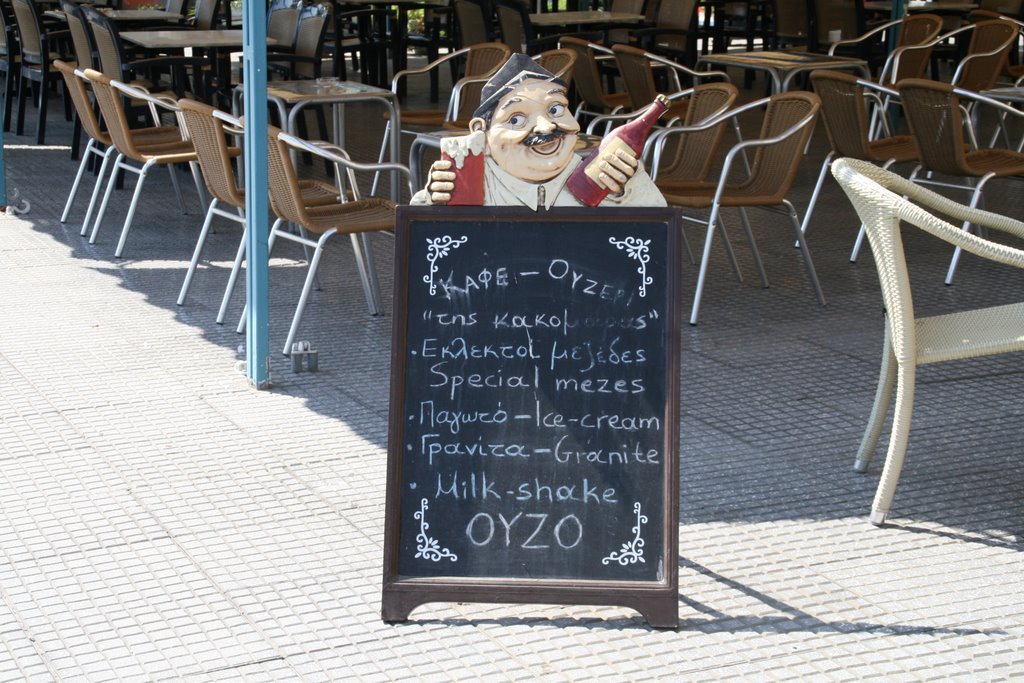 ΚΑΦΕ - ΟΥΖΕΡΙ
"της κακομοίρας"
· Εκλεκτοί μεζέδες
Special mezes
· Παγωτό - Ice-cream
· Γρανίτα - Granite
· Milk-shake
ΟΥΖΟ